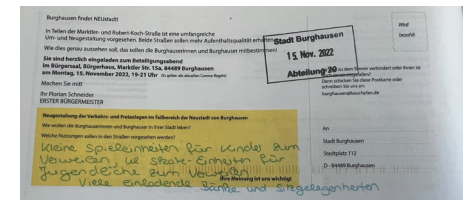 Burghausen findet NEUstadt!
In Teilen der Marktler- und Robert-Koch-Straße ist eine umfangreiche
Um- und Neugestaltung vorgesehen. Beide Straßen sollen mehr Aufenthaltsqualität erhalten
Wie dies genau aussehen soll, das sollen die Burghauserinnen und Burghauser mitbestimmen!
Sie sind herzlich eingeladen zum Beteiligungsabend
im Bürgersaal, Bürgerhaus, Marktler Str. 15a, 84489 Burghausen
am Montag, 15. November 2022, 19-21 Uhr (Es gelten die aktuellen Corona-Regeln)
Machen Sie mit!
Ihr Florian Schneider
ERSTER BÜRGERMEISTER
Stadt Burghausen
15. Nov. 2022
Abteilung 20
Wird
bezahlt
zu dem Termin verhindert oder Ihnen ist
Dann schicken Sie diese Postkarte oder
schreiben Sie uns an:
Neugestaltung der Verkehrs- und Freianlagen im Teilbereich der Neustadt von Burghausen
Wie wollen die Burghauserinnen und Burghauser in Ihrer Stadt leben?
Welche Nutzungen sollen in den Straßen vorgesehen werden?
Kleine Spieleinheiten für Kinder zum
Verweilen, kl. Skate-Einheiten für
Jugendliche zum Verweilen
Ihre Meinung ist uns wichtig!
Viele einladende Bänke und Sitzgelegenheiten
An
Stadt Burghausen
Stadtplatz 112
D - 84489 Burghausen